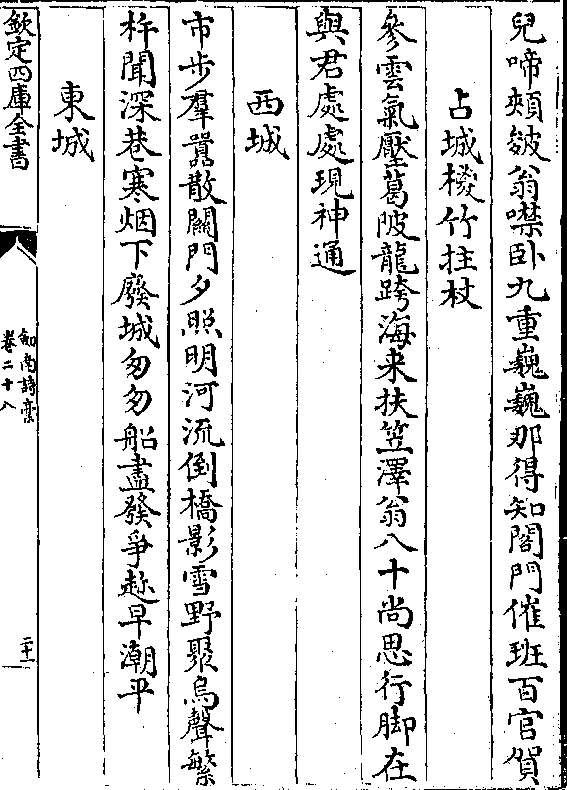 兒啼頰皴翁噤卧九重巍巍那得知閤門催班百官賀
占城椶竹拄杖
參雲氣壓葛陂龍跨海来扶笠澤翁八十尚思行脚在
與君處處現神通
西城
市步羣囂散關門夕照明河流倒橋影雪野聚烏聲繁
杵聞深巷寒烟下廢城匆匆船盡發爭趂早潮平
東城
欽定四庫全書
劍南詩稾
卷二十八
二十一